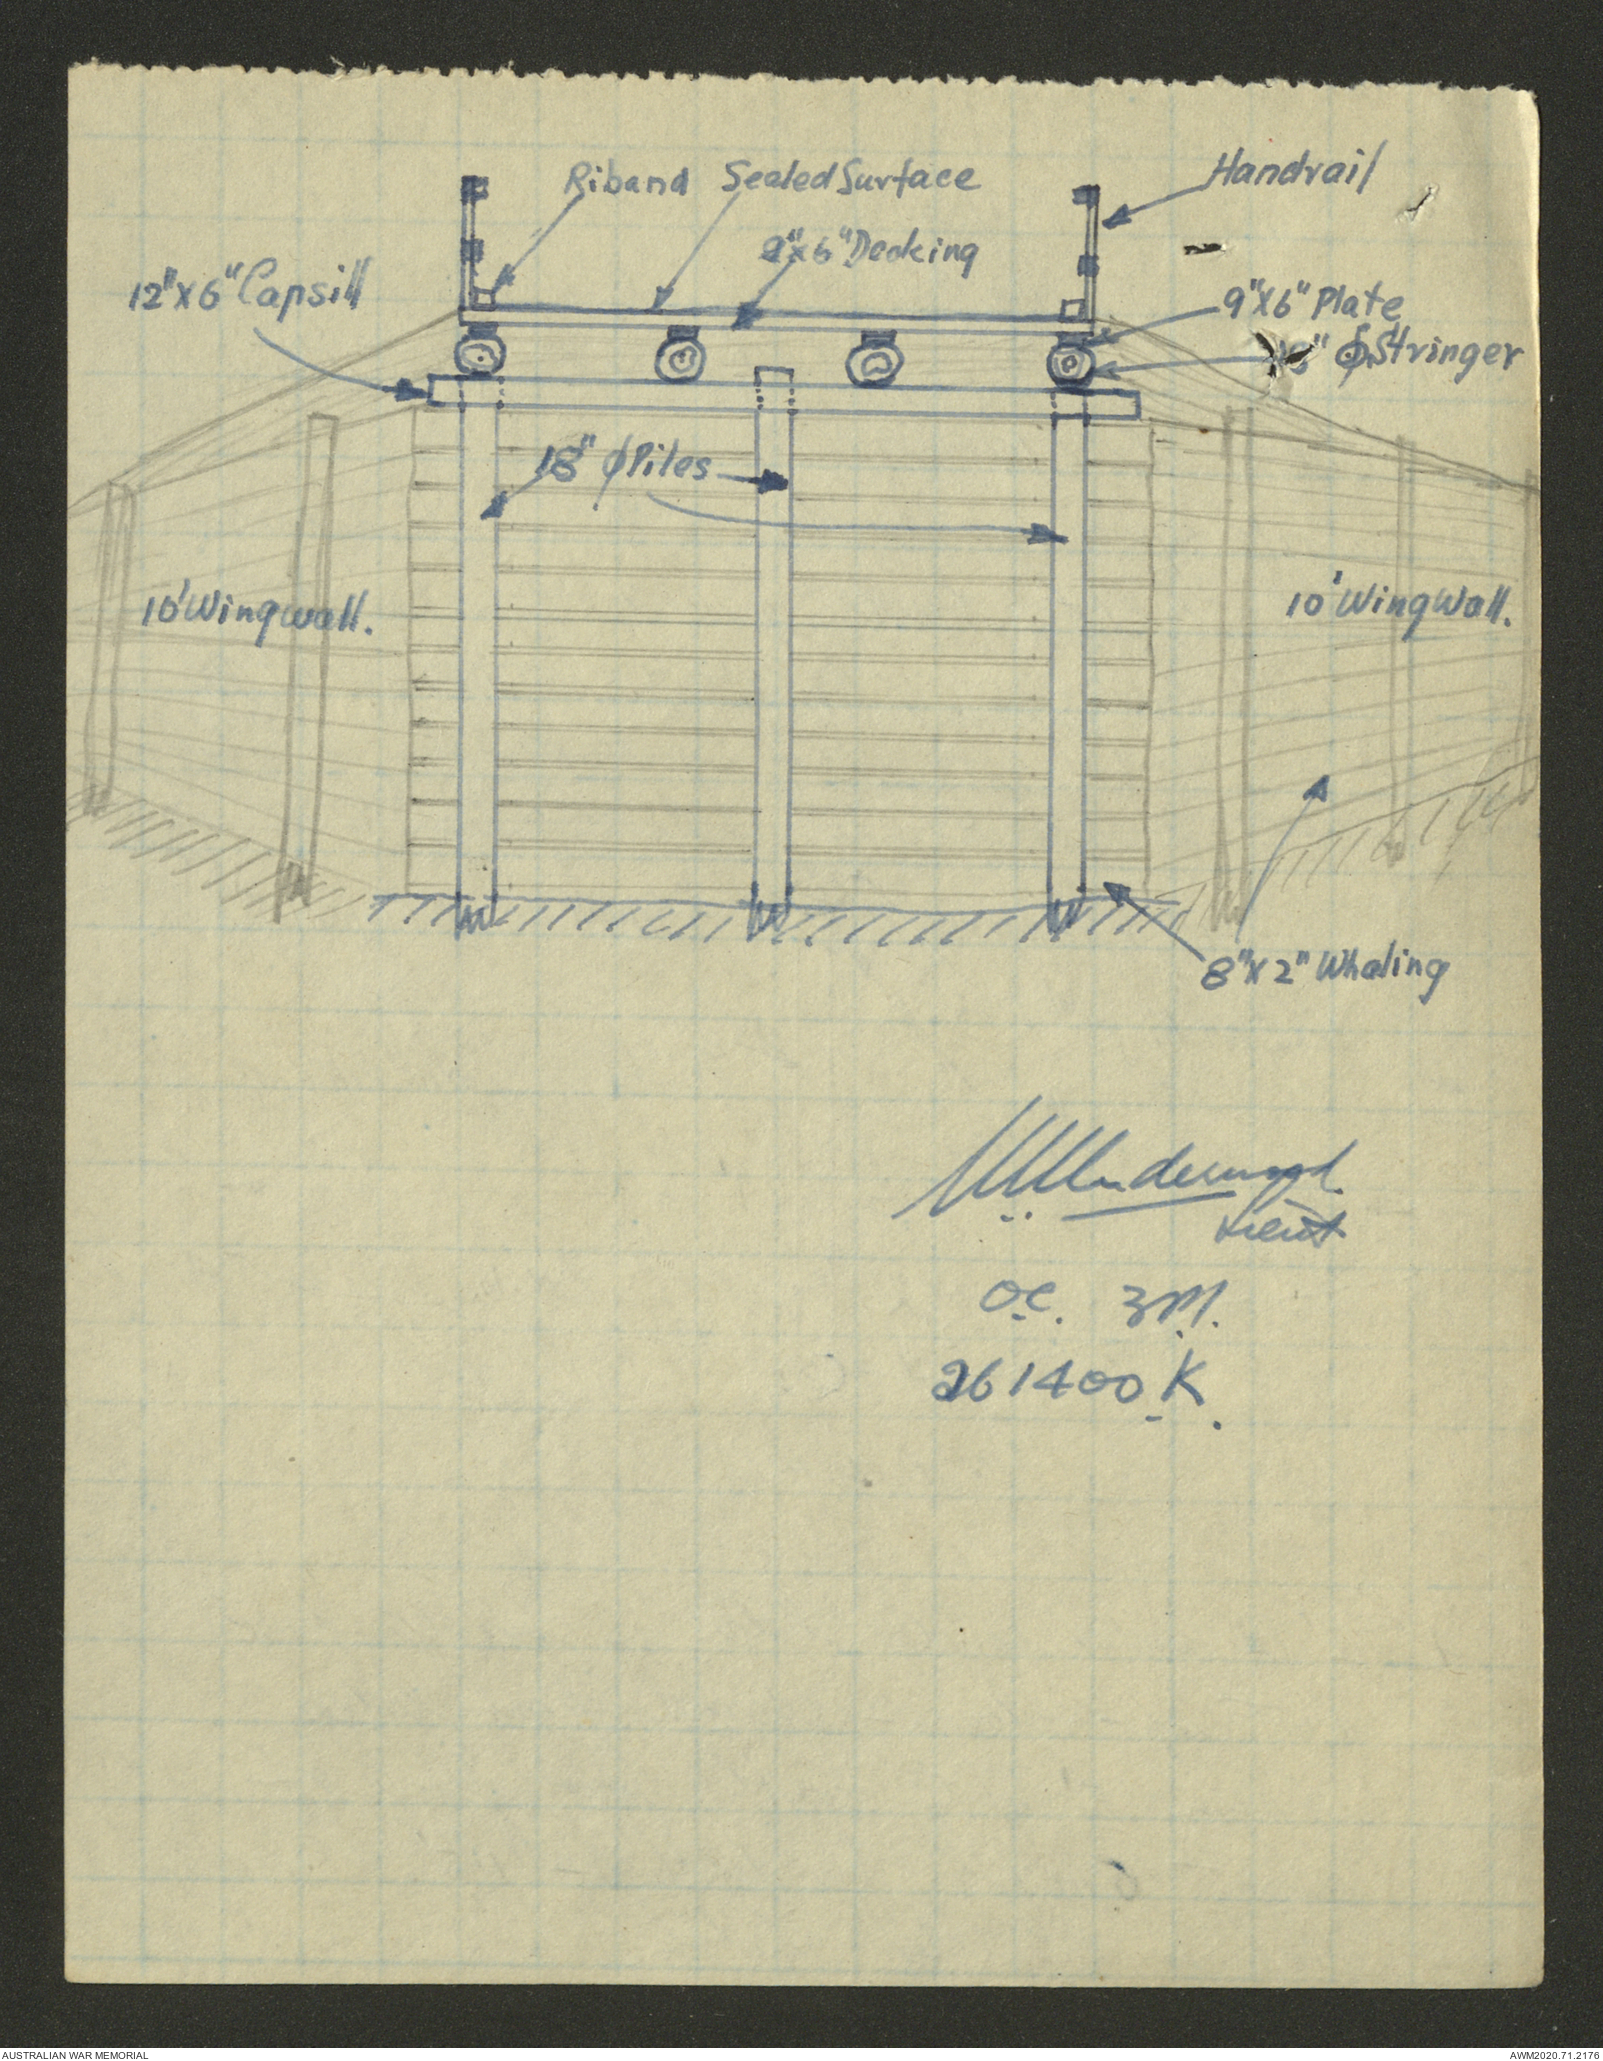 Riband Sealed Surface
Handrail
9"x6" Decking
12"x6" Capsill
9"x6" Plate
Φ Stringer
18" Φ Piles
10' Wingwall.
10' WingWall.
8"x2" Whaling
Underwood
Lieut
O.C. 3Pl.
261400K.
AUSTRALIAN WAR MEMORIAL
AWM2020.71.2176